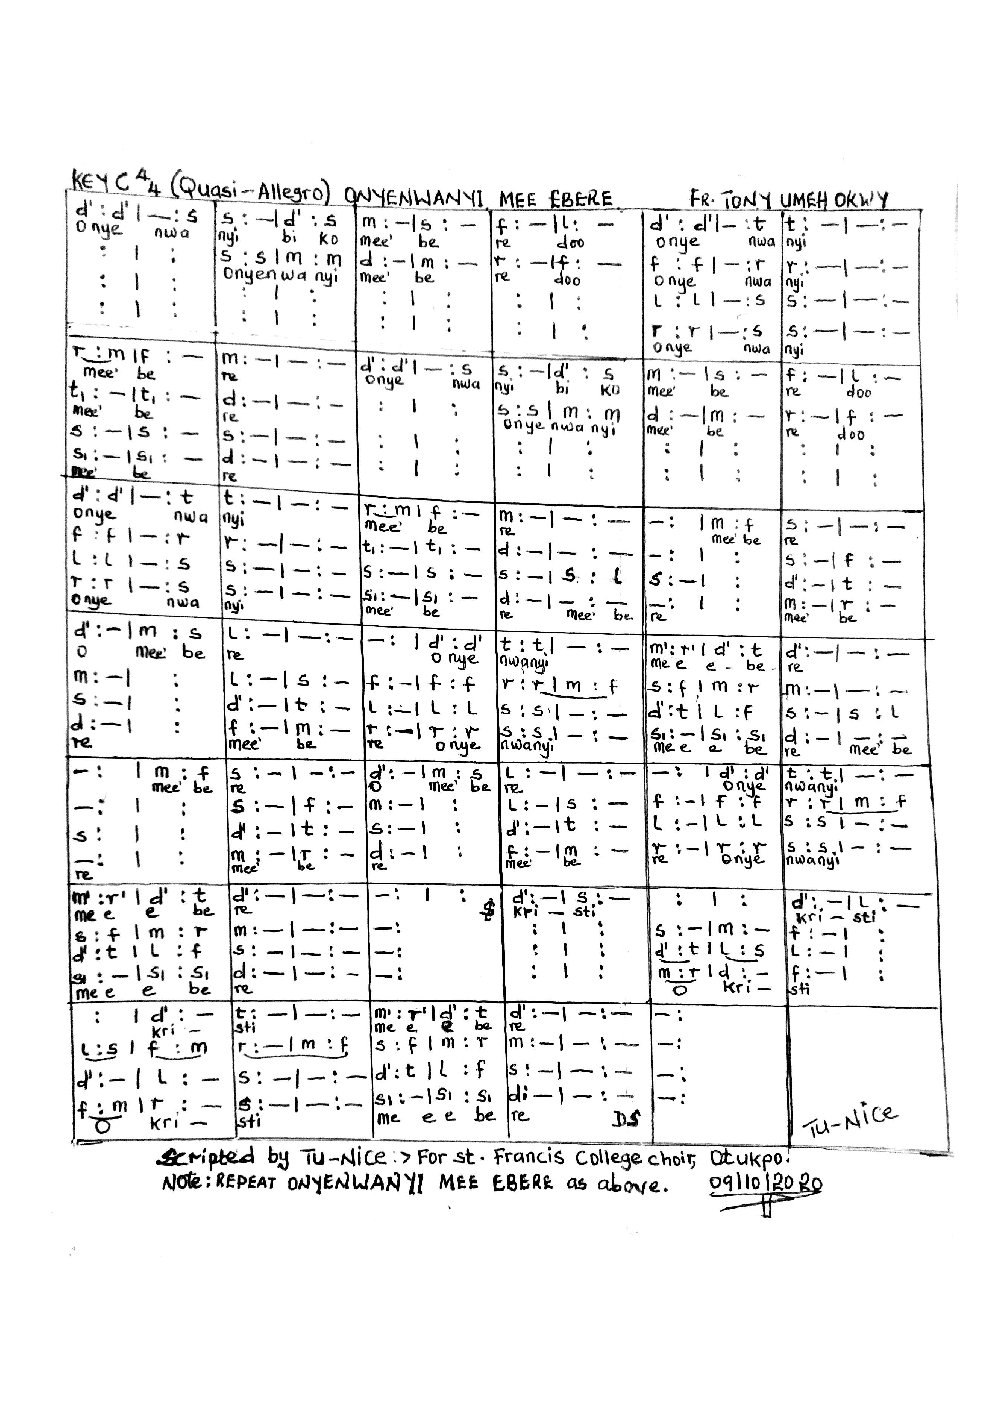 KEY C 4/4 (Quasi-Allegro) ONYENWANYI MEE EBERE FR. TONY UMEH OKWY
d' : d' | — : s s : — | d' : s m : — | s : — f : — | L : — d' : d' | — : t t : — | — : —
Onye nwa nyi bi ko mee' be re doo onye nwa nyi
: | : s : s | m : m d : — | m : — r : — | f : — f : f | — : r r : — | — : —
Onyenwa nyi mee' be re doo Onye nwa nyi
: | : : | : : | : : | : L : L | — : s s : — | — : —
: | : : | : : | : : | : r : r | — : s s : — | — : —
Onye nwa nyi
r : m | f : — m : — | — : — d' : d' | — : s s : — | d' : s m : — | s : — f : — | L : —
mee' be re onye nwa nyi bi ko mee' be re doo
t₁ : — | t₁ : — d : — | — : — : | : s : s | m : m d : — | m : — r : — | f : —
mee' be re onye nwa nyi mee' be re doo
s : — | s : — s : — | — : — : | : : | : : | : : | :
s₁ : — | s₁ : — d : — | — : — : | : : | : : | : : | :
mee' be re
d' : d' | — : t t : — | — : — r : m | f : — m : — | — : — — : | m : f s : — | — : —
onye nwa nyi mee' be re mee' be re
f : f | — : r r : — | — : — t₁ : — | t₁ : — d : — | — : — — : | : s : — | f : —
L : L | — : s s : — | — : — s : — | s : — s : — | s : l s : — | : d' : — | t : —
r : r | — : s s : — | — : — s₁ : — | s₁ : — d : — | — : — — : | : m : — | r : —
Onye nwa nyi mee' be re mee' be re mee' be
d' : — | m : s L : — | — : — — : | d' : d' t : t | — : — m' : r' | d' : t d' : — | — : —
O mee' be re onye nwanyi me e e - be re
m : — | : L : — | s : — f : — | f : f r : r | m : f s : f | m : r m : — | — : —
s : — | : d' : — | t : — L : — | L : L s : s | — : — d' : t | L : f s : — | s : L
d : — | : f : — | m : — r : — | r : r s : s | — : — s₁ : — | s₁ : s₁ d : — | — : —
re mee' be re onye nwanyi me e e be re mee' be
— : | m : f s : — | — : — d' : — | m : s L : — | — : — — : | d' : d' t : t | — : —
mee' be re O mee' be re onye nwanyi
— : | : s : — | f : — m : — | : L : — | s : — f : — | f : f r : r | m : f
s : | : d' : — | t : — s : — | : d' : — | t : — L : — | L : L s : s | — : —
— : | : m : — | r : — d : — | : f : — | m : — r : — | r : r s : s | — : —
re mee' be re mee' be re onye nwanyi
m' : r' | d' : t d' : — | — : — — : | : d' : — | s : — : | : d' : — | L : —
me e e be re $ kri – sti kri – sti
s : f | m : r m : — | — : — — : : | : s : — | m : — f : — | :
d' : t | L : f s : — | — : — — : : | : d' : t | L : s L : — | :
s₁ : — | s₁ : s₁ d : — | — : — — : : | : m : r | d : — f : — | :
me e e be re O kri – sti
: | d' : — t : — | — : — m' : r' | d' : t d' : — | — : — — :
kri – sti me e e be re
L : s | f : m r : — | m : f s : f | m : r m : — | — : — — :
d' : — | L : — s : — | — : — d' : t | L : f s : — | — : — — :
f : m | r : — s : — | — : — s₁ : — | s₁ : s₁ d : — | — : — — :
O kri – sti me e e be re DS TU-NICE
Scripted by TU-NICE :> For st. Francis College choir, Otukpo.
NOte: REPEAT ONYENWANYI MEE EBERE as above. 09|10|2020